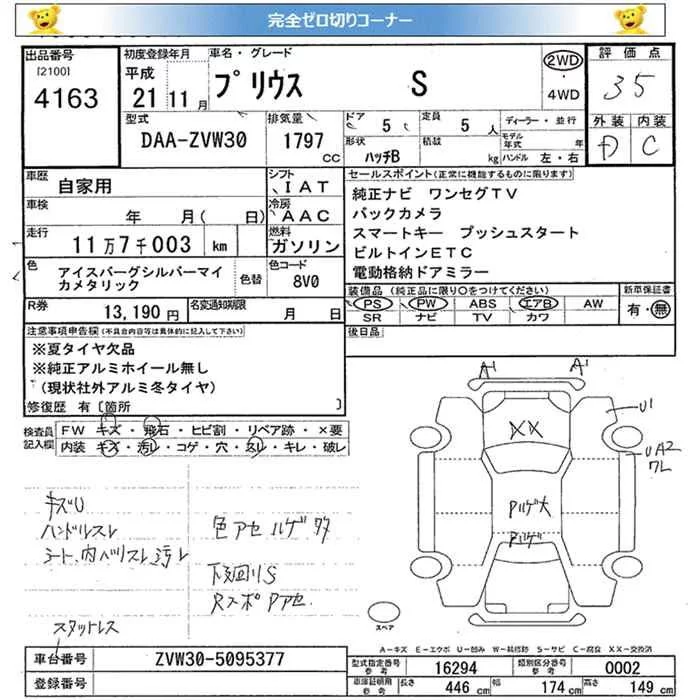 完全ゼロ切りコーナー
出品番号 初度登録年月 車名・グレード 評価点
[2100] 平成 プリウス S 2WD 35
4163 21 11月 ・ 4WD
型式 排気量 ドア 5 定員 5 人 ディーラー・並行 外装 内装
DAA-ZVW30 1797 cc 形状 ハッチB 積載 kg モデル年式 年 ハンドル 左・右 D C
車歴 自家用 シフト IAT セールスポイント(正常に機能するものに限ります)
車検 年 月( 日) 冷房 AAC 純正ナビ ワンセグTV
バックカメラ
走行 11万7千003 km 燃料 ガソリン スマートキー プッシュスタート
ビルトインETC
色 アイスバーグシルバーマイカメタリック 色替 色コード 8V0 電動格納ドアミラー
装備品(純正品に限り○をつけてください) 新車保証書
PS PW ABS エアB AW 有・無
R券 13,190円 名変通知期限 月 日 SR ナビ TV カワ
注意事項申告欄(不具合内容等は具体的に記入して下さい) 後日品
※夏タイヤ欠品
※純正アルミホイール無し
(現状社外アルミ冬タイヤ)
修復歴 有〔箇所 〕
検査員記入欄 FW キズ・飛石・ヒビ割・リペア跡・×要
内装 キズ・汚レ・コゲ・穴・スレ・キレ・破レ
A1 A1
U1
XX
UA2
ワレ
Pハゲ大
Pハゲ
キズU
ハンドルスレ 色アセ ハゲ多
シート、内ハリスレ汚レ
下廻りS
RスポPアセ
スタットレス
スペア
A-キズ E-エクボ U-凹み W-補修跡 S-サビ C-腐食 XX-交換済
車台番号 ZVW30-5095377 型式指定番号 参考 16294 類別区分番号 参考 0002
登録番号 車庫証明用 参考 長さ 446 cm 幅 174 cm 高さ 149 cm